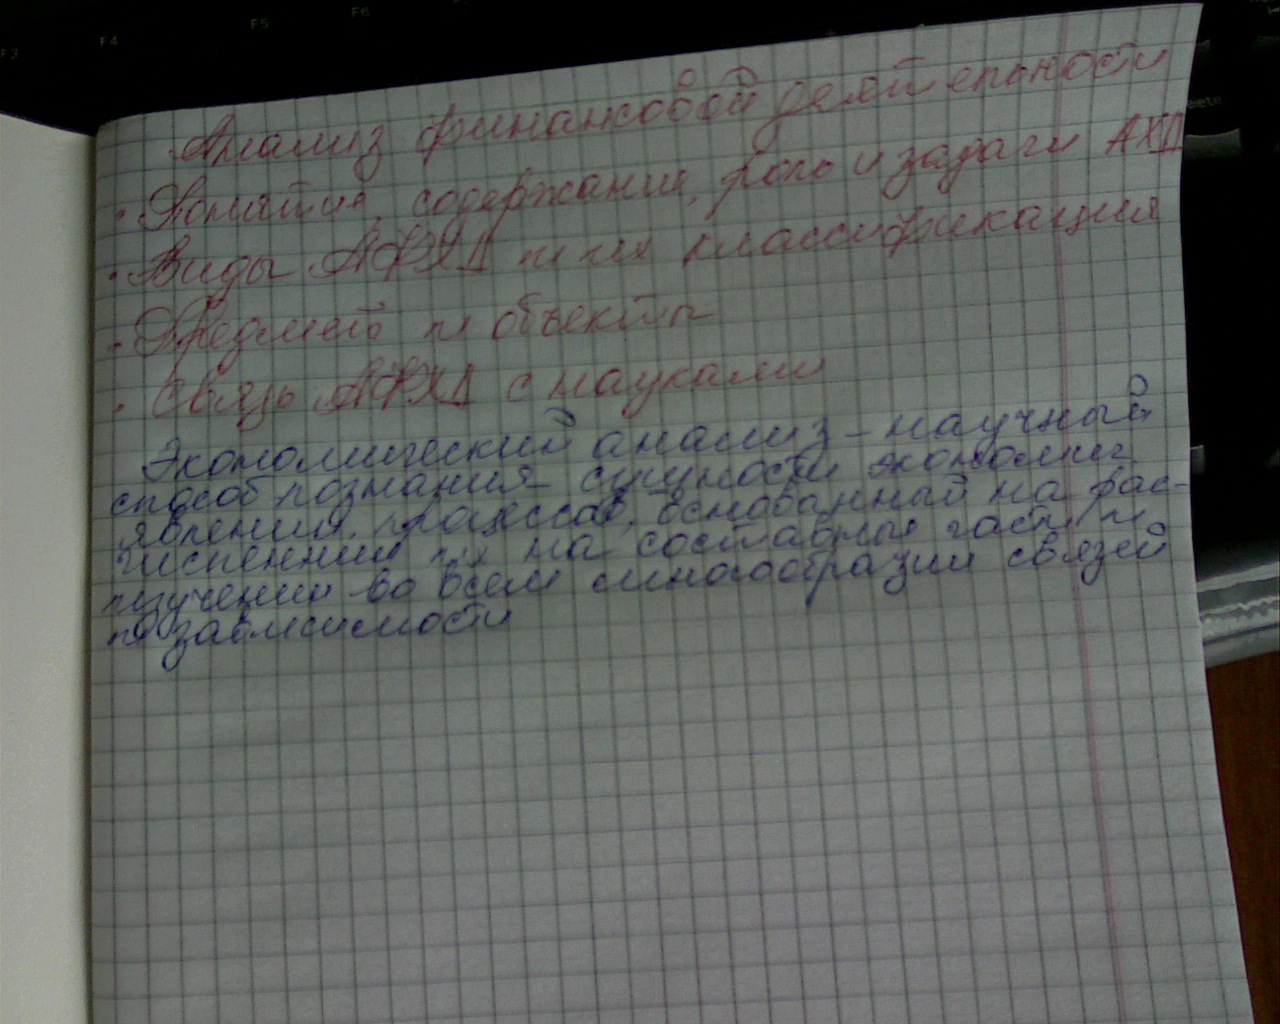 Анализ финансовой деятельности
· Понятия, содержание, роль и задачи АХД
· Виды АФХД и их классификация
· Предмет и объекты
· Связь АФХД с науками
Экономический анализ – научный
способ познания сущности экономич.
явлений, процессов, основанный на рас-
числении их на составные части и
изучении во всем многообразии связей
и зависимости